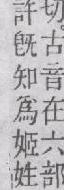 切古音在六部
許旣知爲姬姓